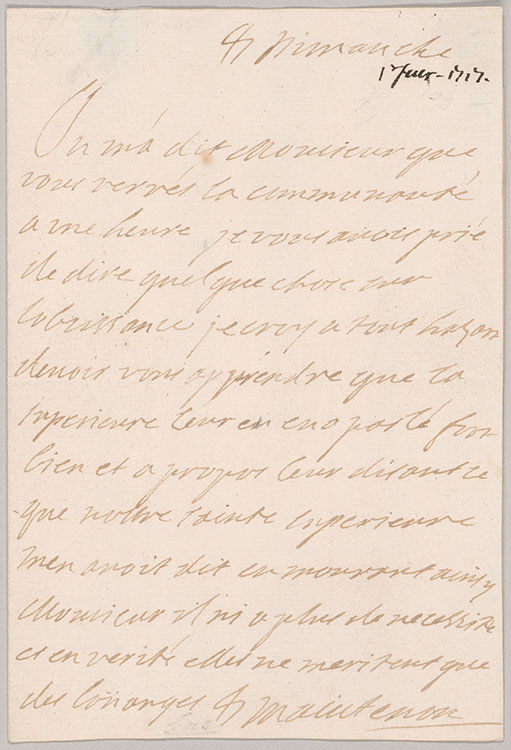 Dimanche
1r fevr. 1717.
On m'a dit Monsieur que
vous verrés la communauté
a une heure je vous avois prié
de dire quelque chose sur
lobeissance je croy a tout hazar
devoir vous apprendre que la
superieure leur en a parlé fort
bien et a propos leur disant ce
que nostre sainte superieure
men avoit dit en mourant ainsy
Monsieur il ni a plus de necessité
et en verité elles ne meritent que
des louanges Maintenon